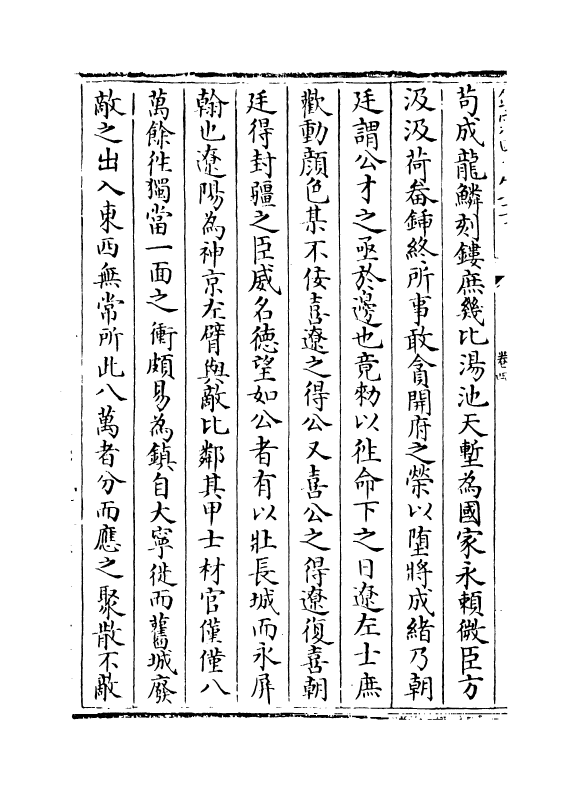 苟成龍鱗刻鏤庶幾比湯池天塹為國家永賴微臣方
汲汲荷畚鍤終所事敢貪開府之榮以墮將成緒乃朝
廷謂公才之亟於邊也竟勑以徃命下之日遼左士庶
歡動顔色某不佞喜遼之得公又喜公之得遼復喜朝
廷得封疆之臣威名德望如公者有以壯長城而永屏
翰也遼陽為神京左臂與敵比鄰其甲士材官僅僅八
萬餘徃獨當一面之衝頗易為鎮自大寧徙而舊城廢
敵之出入東西無常所此八萬者分而應之聚散不敵
卷四